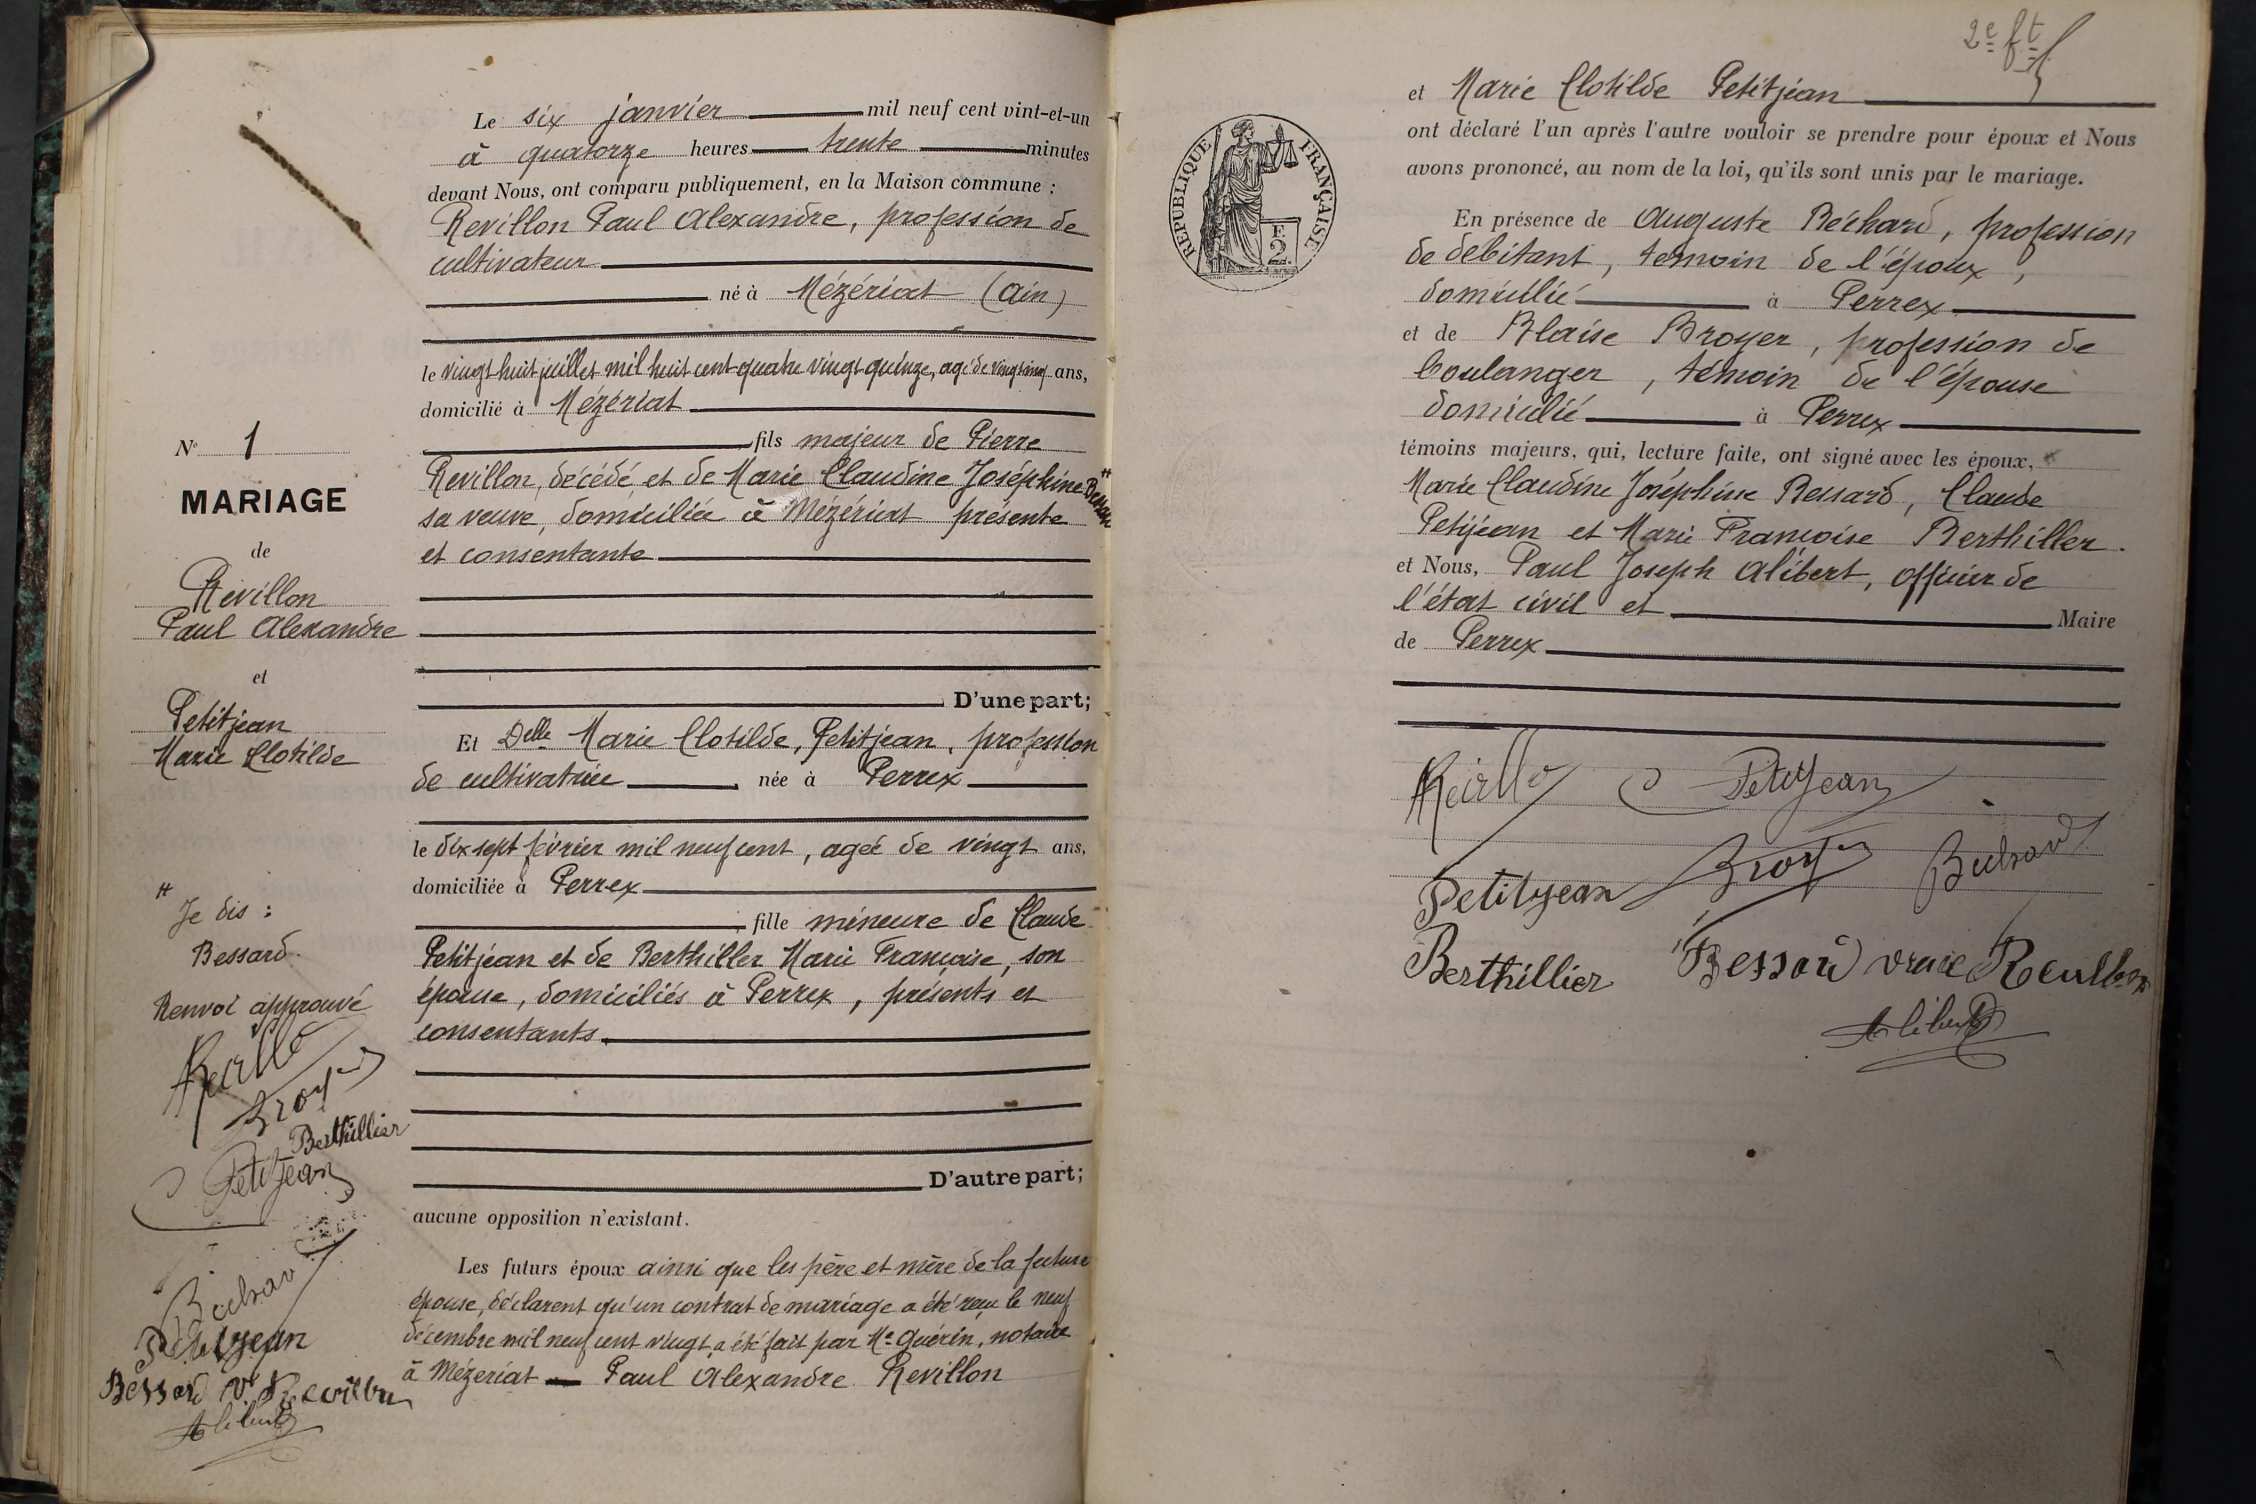 Le six janvier mil neuf cent vint-et-un
à quatorze heures trente minutes
devant Nous, ont comparu publiquement, en la Maison commune :
Revillon Paul Alexandre, profession de
cultivateur
né à Mézériat (Ain)
le vingt huit juillet mil huit cent quatre vingt quinze, agé de vingt cinq ans,
domicilié à Mézériat
fils majeur de Pierre
Revillon, décédé, et de Marie Claudine Joséphine Bessard
sa veuve, domiciliée à Mézériat présente
et consentante
D'une part;
Et Delle Marie Clotilde, Petitjean, profession
de cultivatrice née à Perrex
le dix sept février mil neuf cent, agée de vingt ans,
domiciliée à Perrex
fille mineure de Claude
Petitjean et de Berthiller Marie Françoise, son
épouse, domiciliés à Perrex, présents et
consentants.
D'autre part;
aucune opposition n'existant.
Les futurs époux ainsi que les père et mère de la future
épouse, déclarent qu'un contrat de mariage a été reçu le neuf
décembre mil neuf cent vingt, a été fait par Me Guérin, notaire
à Mézeriat Paul Alexandre Revillon
No 1
MARIAGE
de
Revillon
Paul Alexandre
et
Petitjean
Marie Clotilde
# Je dis :
Bessard.
Renvoi approuvé
Broyer
Berthillier
Petitjean
Petitjean
Bessard Ve Revillon
Alibert
2e ft
RÉPUBLIQUE FRANÇAISE
F.
2.
et Marie Clotilde Petitjean
ont déclaré l'un après l'autre vouloir se prendre pour époux et Nous
avons prononcé, au nom de la loi, qu'ils sont unis par le mariage.
En présence de Auguste Béchard, profession
de débitant, témoin de l'époux,
domicilié à Perrex
et de Blaise Broyer, profession de
boulanger, témoin de l'épouse
domicilié à Perrex
témoins majeurs, qui, lecture faite, ont signé avec les époux,
Marie Claudine Joséphine Bessard, Claude
Petijean et Marie Françoise Berthiller.
et Nous, Paul Joseph Alibert, officier de
l'état civil et Maire
de Perrex
Petitjean
Petitjean Broyer
Berthillier Bessard veuve Revillon
Alibert